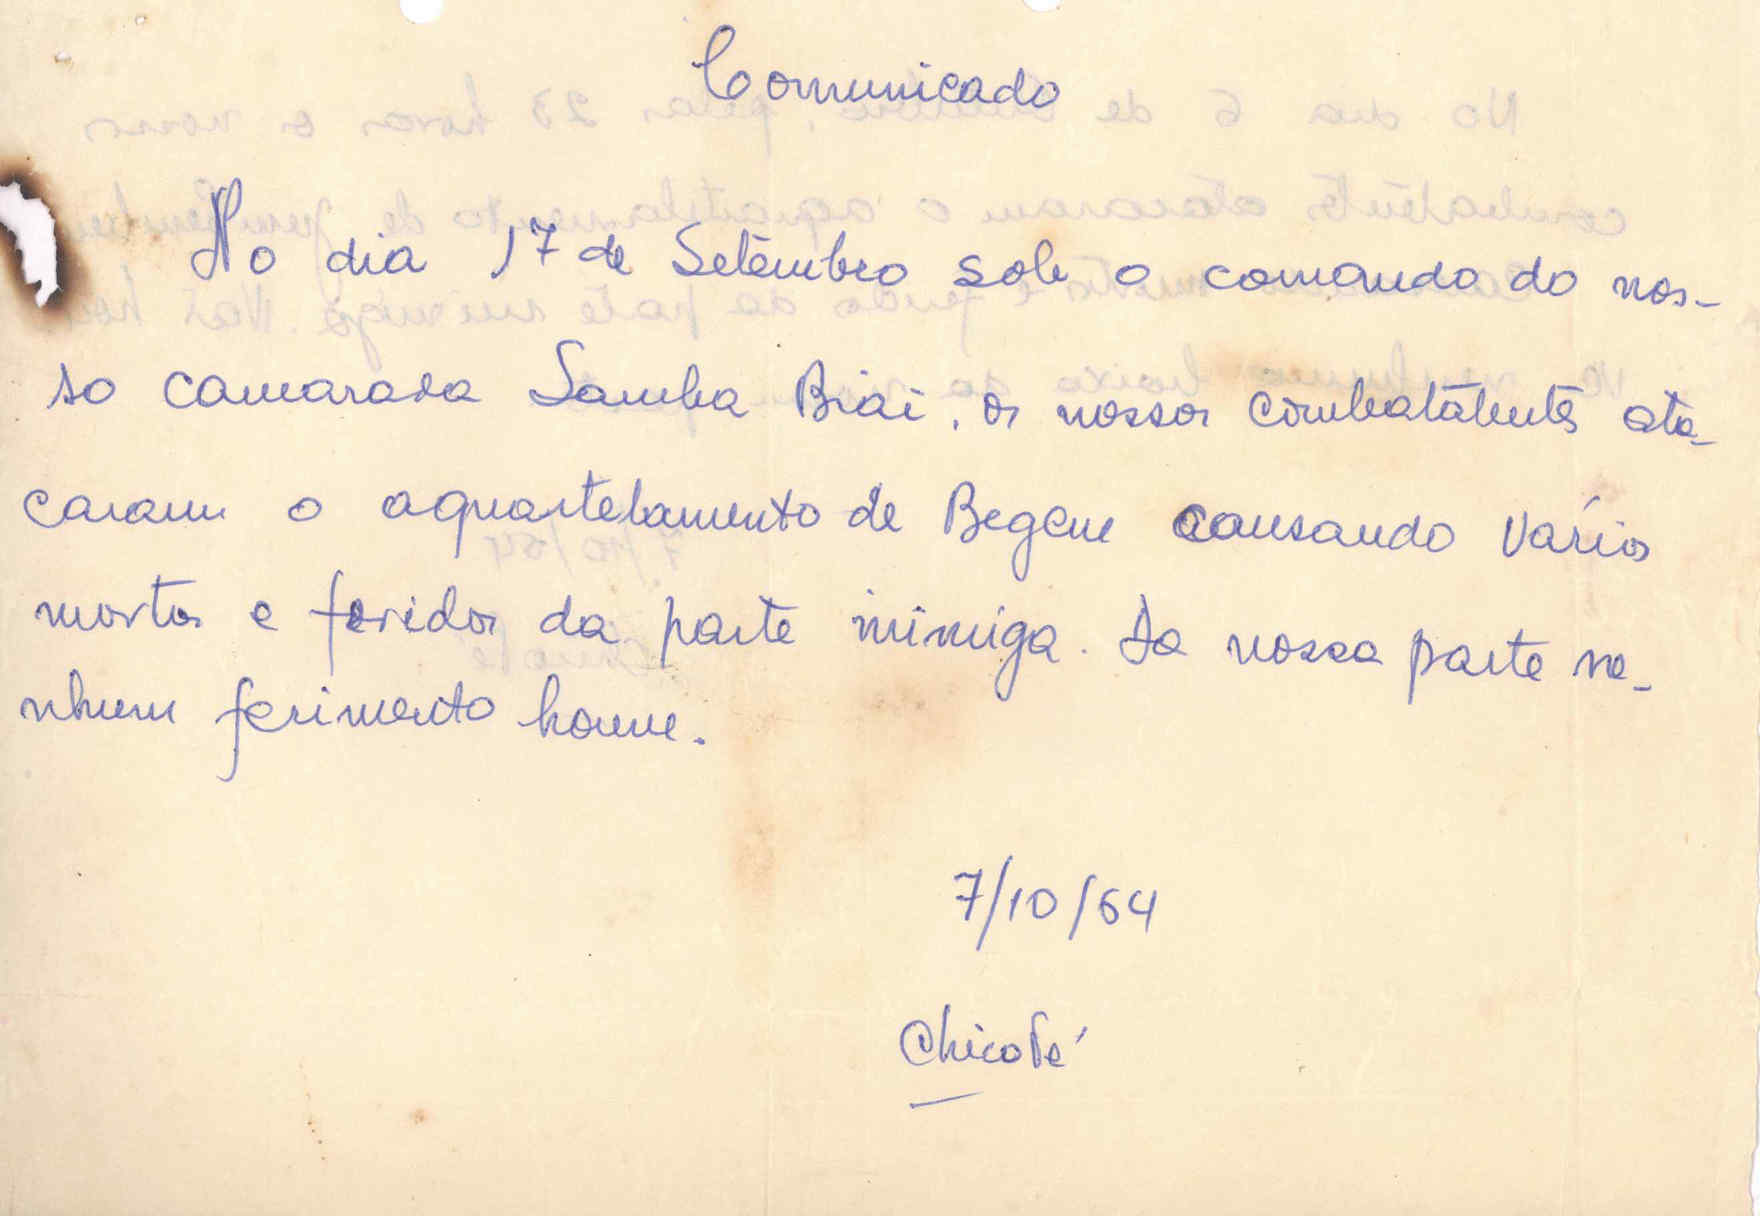 Comunicado
No dia 17 de Setêmbro sob o comando do nos-
so camarada Samba Biai, os nossos combatātentês ata-
caram o aquartelamento de Begene causando vários
mortos e feridos da parte inimiga. Da nossa parte ne-
nhum ferimento houve.
7/10/64